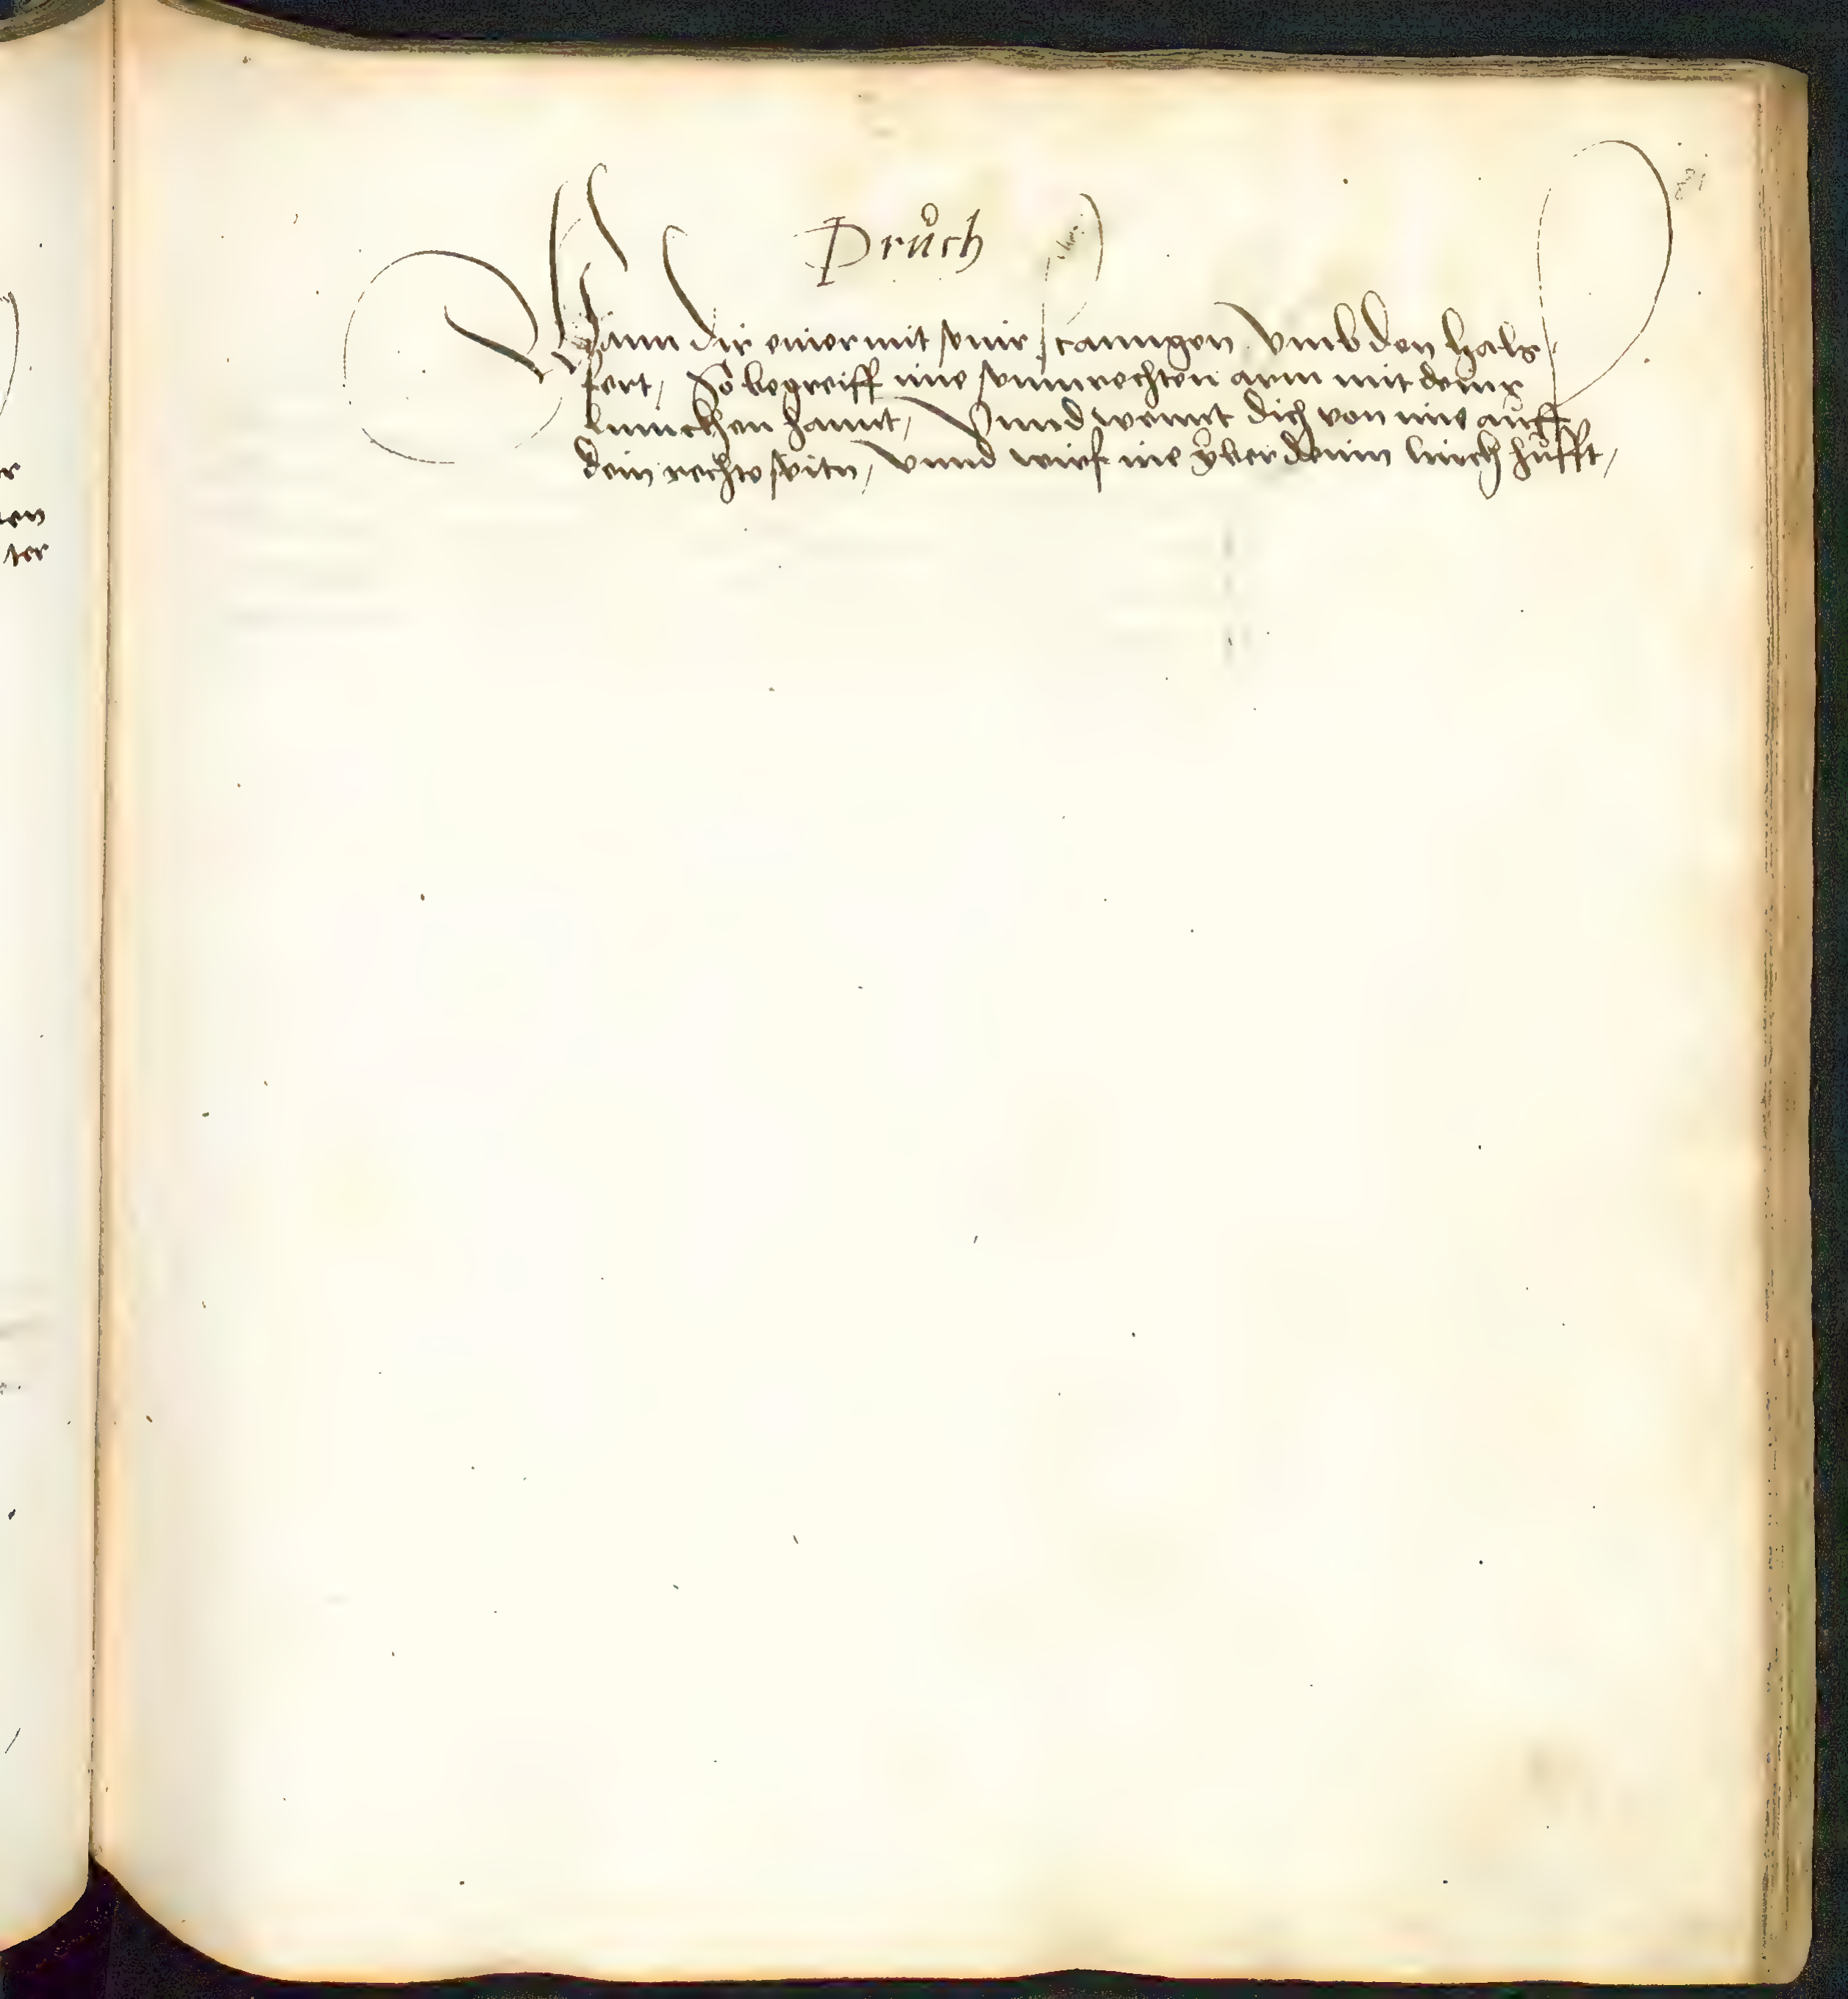 Pruͦch
Wann dir einer mit seinr stanngen vmb den hals
fert, So begreiff ine seinn rechten arm mit deinr
linnckhen hannt, Vnnd wennt dich von ine auff
dein rechte seitn, vnnd wirf ine yber deinn linckh hufft,
r
nen
ter